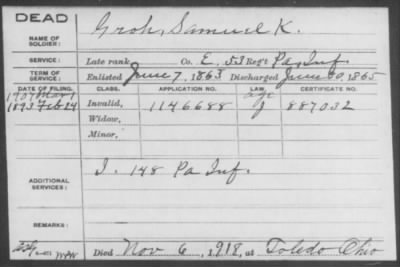 DEAD
NAME OF SOLDIER: Groh, Samuel K.
SERVICE: Late rank Co. E, 53 Reg't Pa. Inf.
TERM OF SERVICE: Enlisted June 7, 1863 Discharged June 30, 1865
DATE OF FILING. CLASS. APPLICATION NO. LAW. CERTIFICATE NO.
1907 Mar age
1893 Feb 24 Invalid, 1146688 J 887032
Widow,
Minor,
ADDITIONAL SERVICES: I. 148 Pa Inf.
REMARKS:
Died Nov 6, 1918, at Toledo Ohio